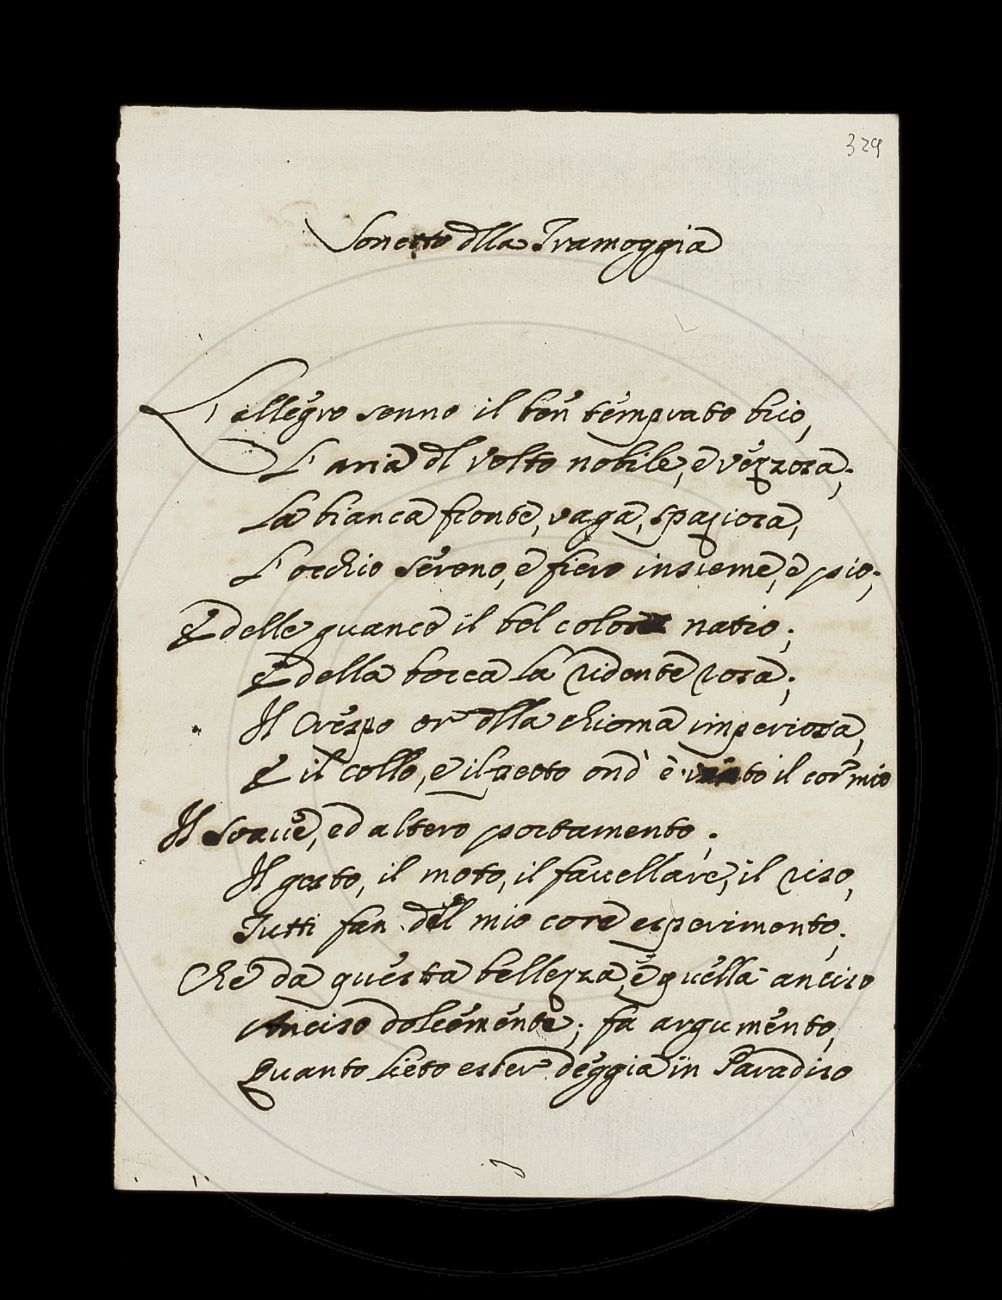 329
Sonetto dlla Tramoggia
L'allegro senno il ben temprato brio,
L'aria dl volto nobile, e vezzosa;
La bianca fronte, vaga, spaziosa,
L'occhio sereno, e fiero insieme, e pio;
E delle guance il bel colore natio;
E della bocca la ridente rosa;
Il crespo or dlla chioma imperiosa,
E il collo, e il petto ond' è vinto il cor mio
Il soave, ed altero portamento;
Il gesto, il moto, il favellare, il riso,
Tutti fan del mio core esperimento;
Che da questa bellezza, e quella anciso
Anciso dolcemente; fa argumento,
Quanto lieto esser deggia in Paradiso